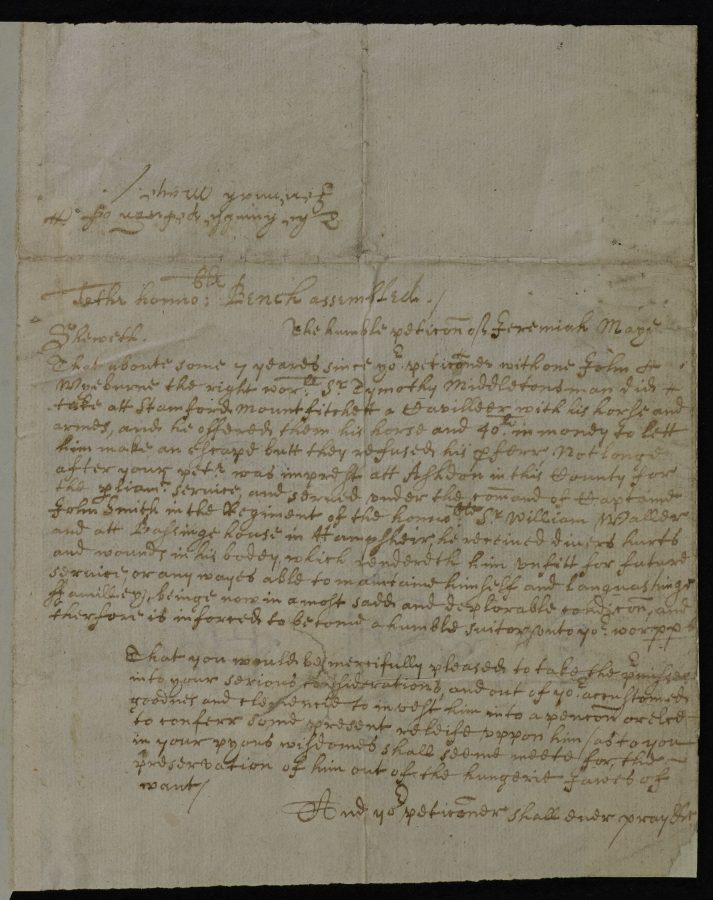 Jeremiah Maye
The humble peticon of
To the honno:ble Bench assembled./
The humble peticon of Jeremiah Maye
Sheweth.
That aboute some 7 yeares since yor peticoner with one John
Wyeburne the right worll. Sr. Tymothy Middletons man did
take att Stamford Mountfitchett a Cavilleer with his horse and
armes, and he offered them his horse and 40s. in money to lett
him make an escape butt they refused his pferr. Not longe
after your petr. was imprest att Ashdon in this County for
the pliamt. service, and served under the comand of Captaine
John Smith in the Regiment of the honnoble Sr. William Waller
and att Bassinge house in Hampsheir, he received divers hurts
and wounds in his bodey, which rendereth him unfitt for future
service, or any wayes able to maintaine himself and languashinge
ffamilley, beinge now in a most sadd and deplorable condicon, and
therfore is inforced to become a humble suitor unto yor worpps
That you would be mercifully pleased to take the pmisses
into your serious considerations, and out of yor accustomed
goodnes and clemencie to invest him into a pencon or elce
to conferr some present releife uppon him (as to you
in your pyous wisdomes shall seeme meete for the
preservation of him out of the hungerie Jawes of
want/
And yor peticoner shall ever pray &c